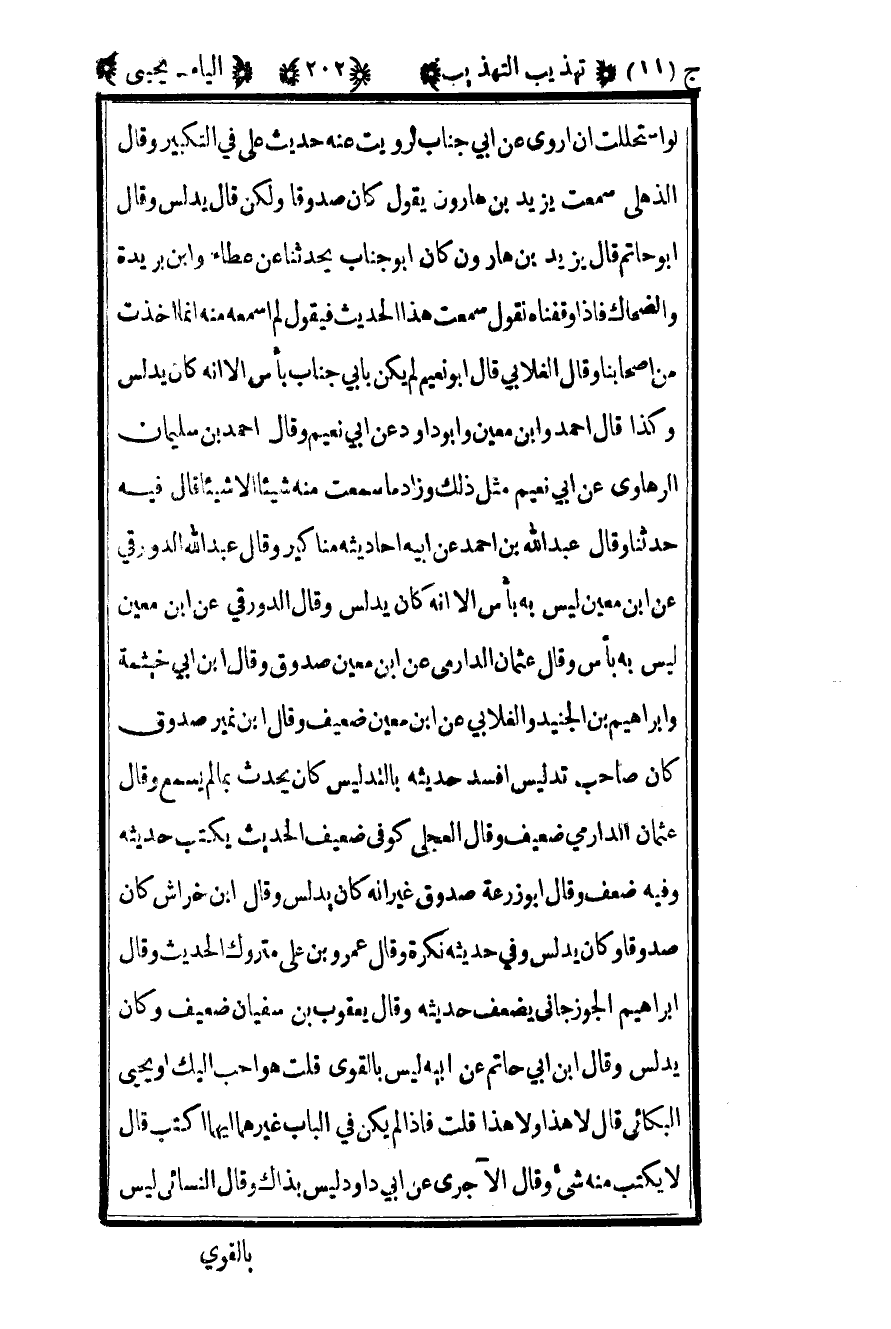 ج (١١) تهذيب التهذيب ٢٠٢ الياء - يحيى
لو استحللت ان اروى عن ابي جناب لرويت عنه حديث على في التكبير وقال
الذهلى سمعت يزيد بن هارون يقول كان صدوقا ولكن قال يدلس وقال
ابو حاتم قال يزيد بن هارون كان ابو جناب يحدثنا عن عطاء وابن بريدة
والضحاك فاذا وقفناه نقول سمعت هذا الحديث فيقول لم اسمعه منه انما اخذت
من اصحابنا وقال الغلابي قال ابو نعيم لم يكن بابي جناب بأس الا انه كان يدلس
وكذا قال احمد وابن معين وابو داود عن ابي نعيم وقال احمد بن سليمان
الرهاوى عن ابي نعيم مثل ذلك وزاد ما سمعت منه شيئا الا شيئا قال فيه
حدثنا وقال عبد الله بن احمد عن ابيه احاديثه مناكير وقال عبد الله الدورقي
عن ابن معين ليس به بأس الا انه كان يدلس وقال الدورقي عن ابن معين
ليس به بأس وقال عثمان الدارمى عن ابن معين صدوق وقال ابن ابي خيثمة
وابراهيم بن الجنيد والغلابي عن ابن معين ضعيف وقال ابن نمير صدوق
كان صاحب تدليس افسد حديثه بالتدليس كان يحدث بما لم يسمع وقال
عثمان الدارمي ضعيف وقال العجلى كوفى ضعيف الحديث يكتب حديثه
وفيه ضعف وقال ابو زرعة صدوق غير انه كان يدلس وقال ابن خراش كان
صدوقا وكان يدلس وفي حديثه نكرة وقال عمرو بن على متروك الحديث وقال
ابراهيم الجوزجانى يضعف حديثه وقال يعقوب بن سفيان ضعيف وكان
يدلس وقال ابن ابي حاتم عن ابيه ليس بالقوى قلت هو احب اليك او يحيى
البكائى قال لا هذا ولا هذا قلت فاذا لم يكن في الباب غيرهما ايهما اكتب قال
لا يكتب منه شئ وقال الآجرى عن ابي داود ليس بذاك وقال النسائى ليس
بالقوي